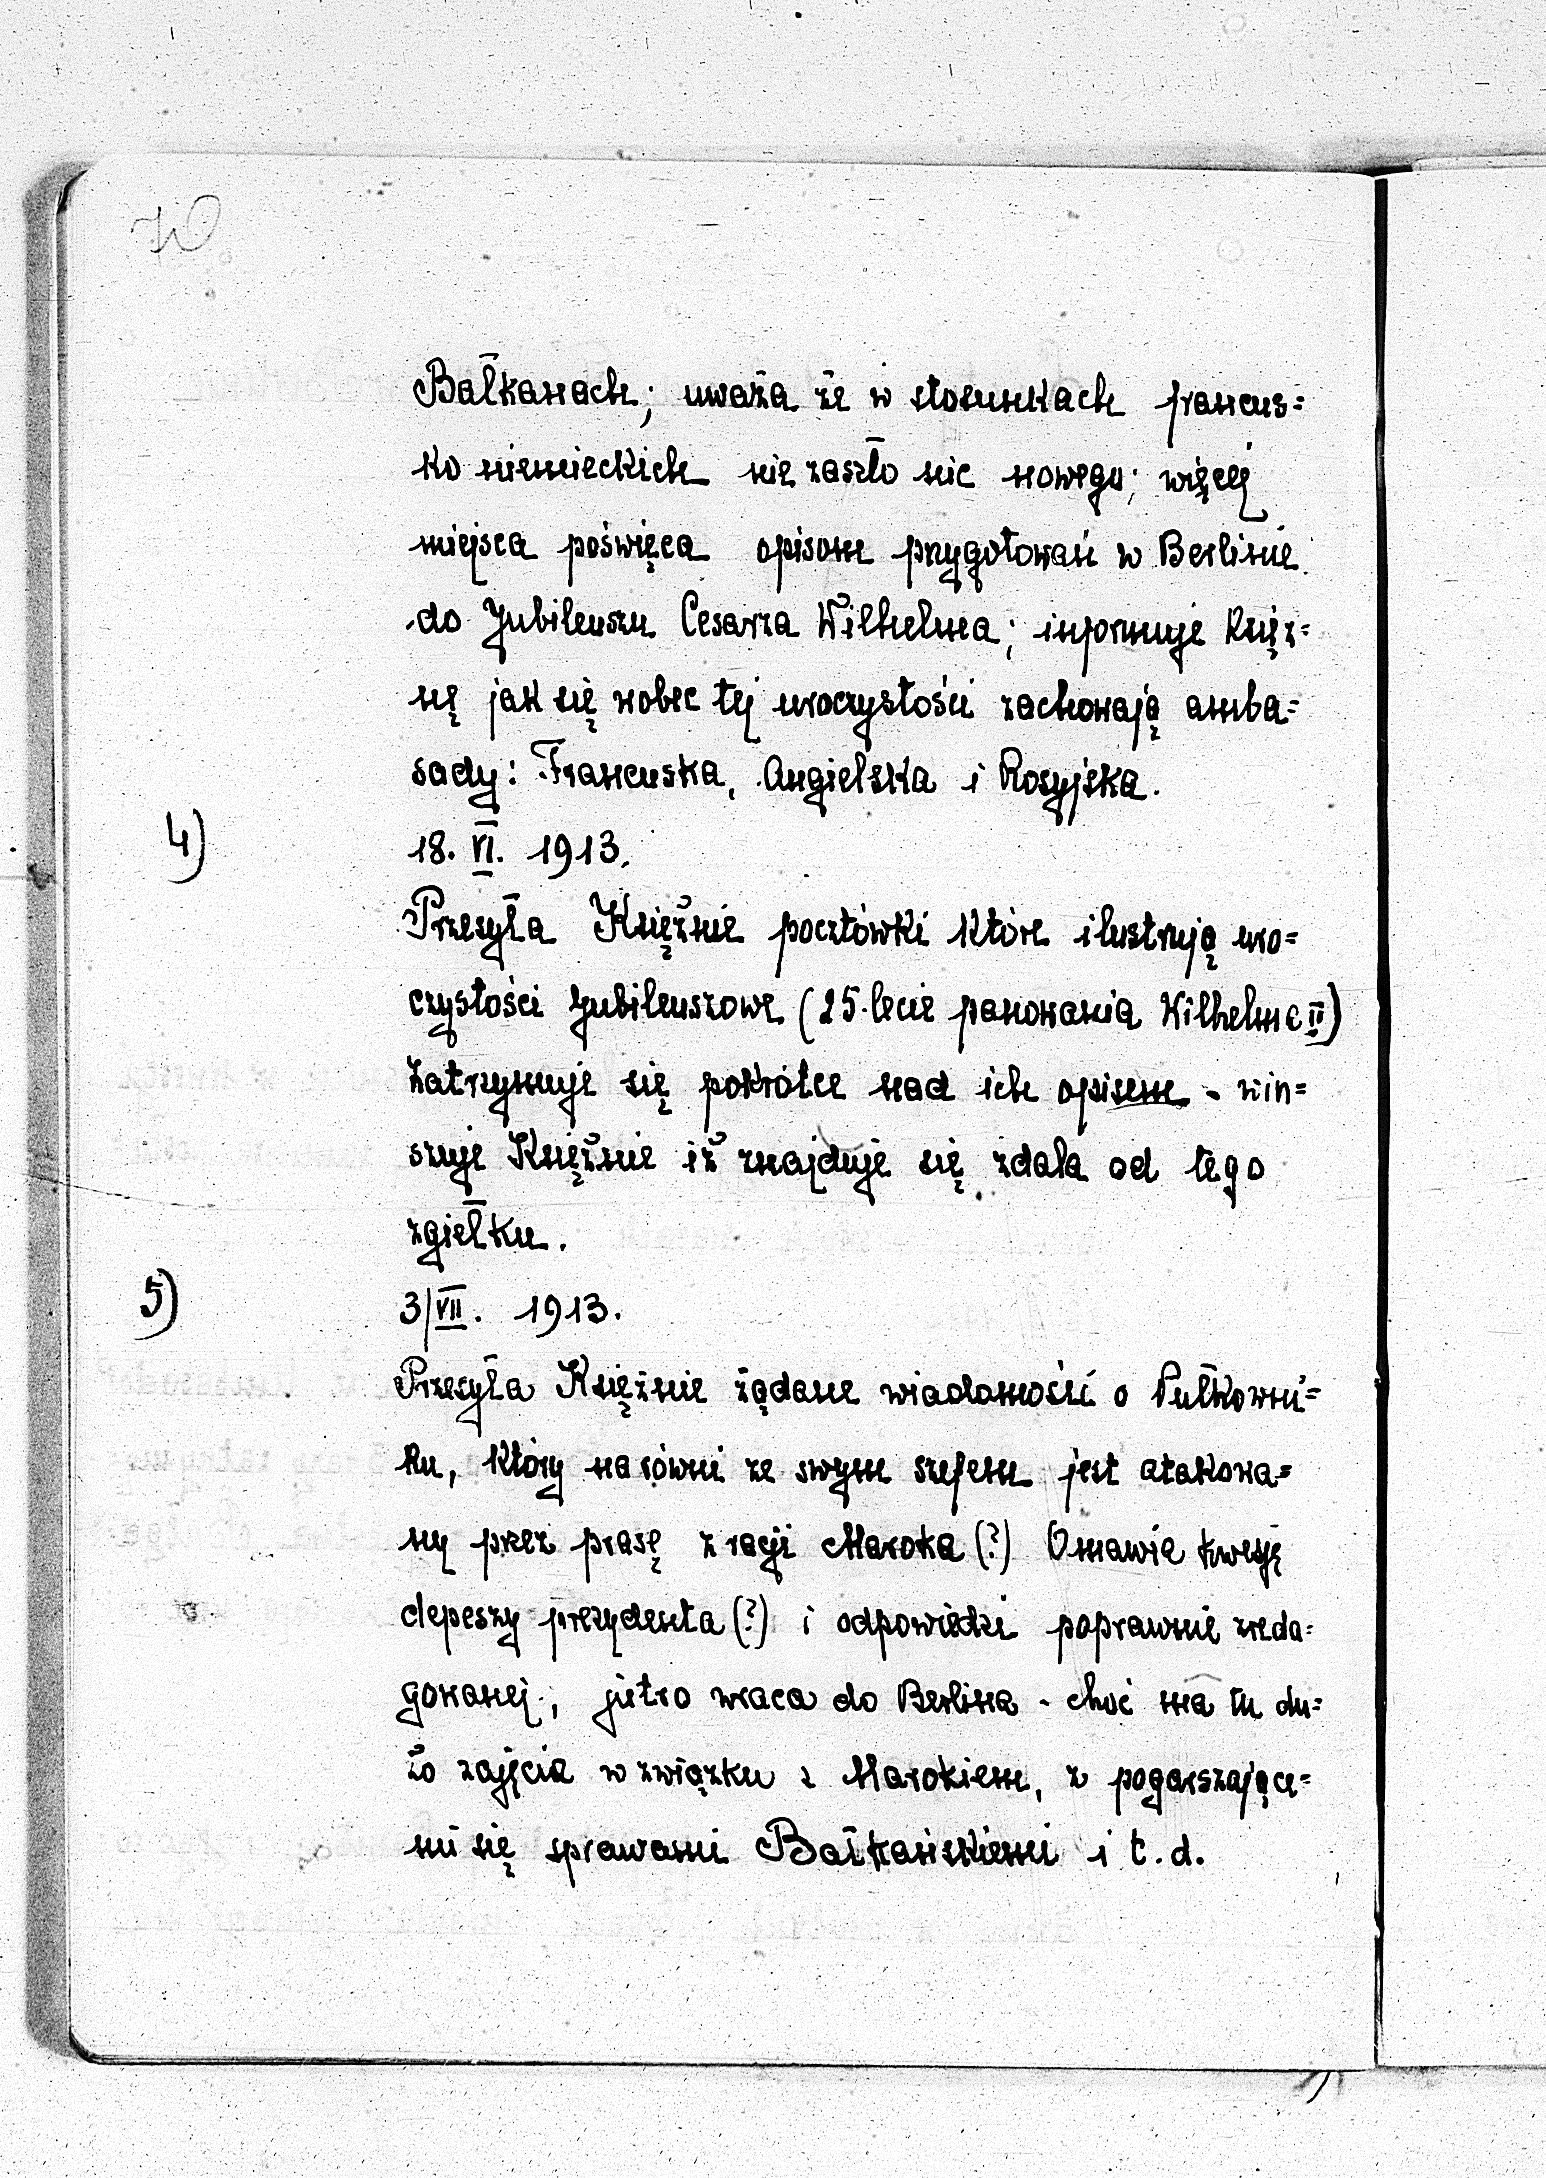 70
Bałkanach; uważa że w stosunkach francus=
ko niemieckich nie zaszło nic nowego; więcej
miejsca poświęca opisom przygotowań w Berlinie
do Jubileuszu Cesarza Wilhelma; informuje Księż=
nę jak się wobec tej uroczystości zachowają amba=
sady: Francuska, Angielska i Rosyjska.
4) 18. VI. 1913.
Przesyła Księżnie pocztówki które ilustrują uro=
czystości Jubileuszowe (25-lecie panowania Wilhelma II)
Zatrzymuje się pokrótce nad ich opisem - win=
szuje Księżnie iż znajduje się zdala od tego
zgiełku.
5) 3/VII. 1913.
Przesyła Księżnie żądane wiadomości o Pułkowni=
ku, który narówni ze swym szefem jest atakowa=
ny przez prasę z racji Maroka (?) Omawia kwesję
depeszy prezydenta (?) i odpowiedzi poprawnie zreda=
gowanej; jutro wraca do Berlina - choć ma tu du=
żo zajęcia w związku z Marokiem, z pogarszające=
mi się sprawami Bałkańskiemi i t.d.